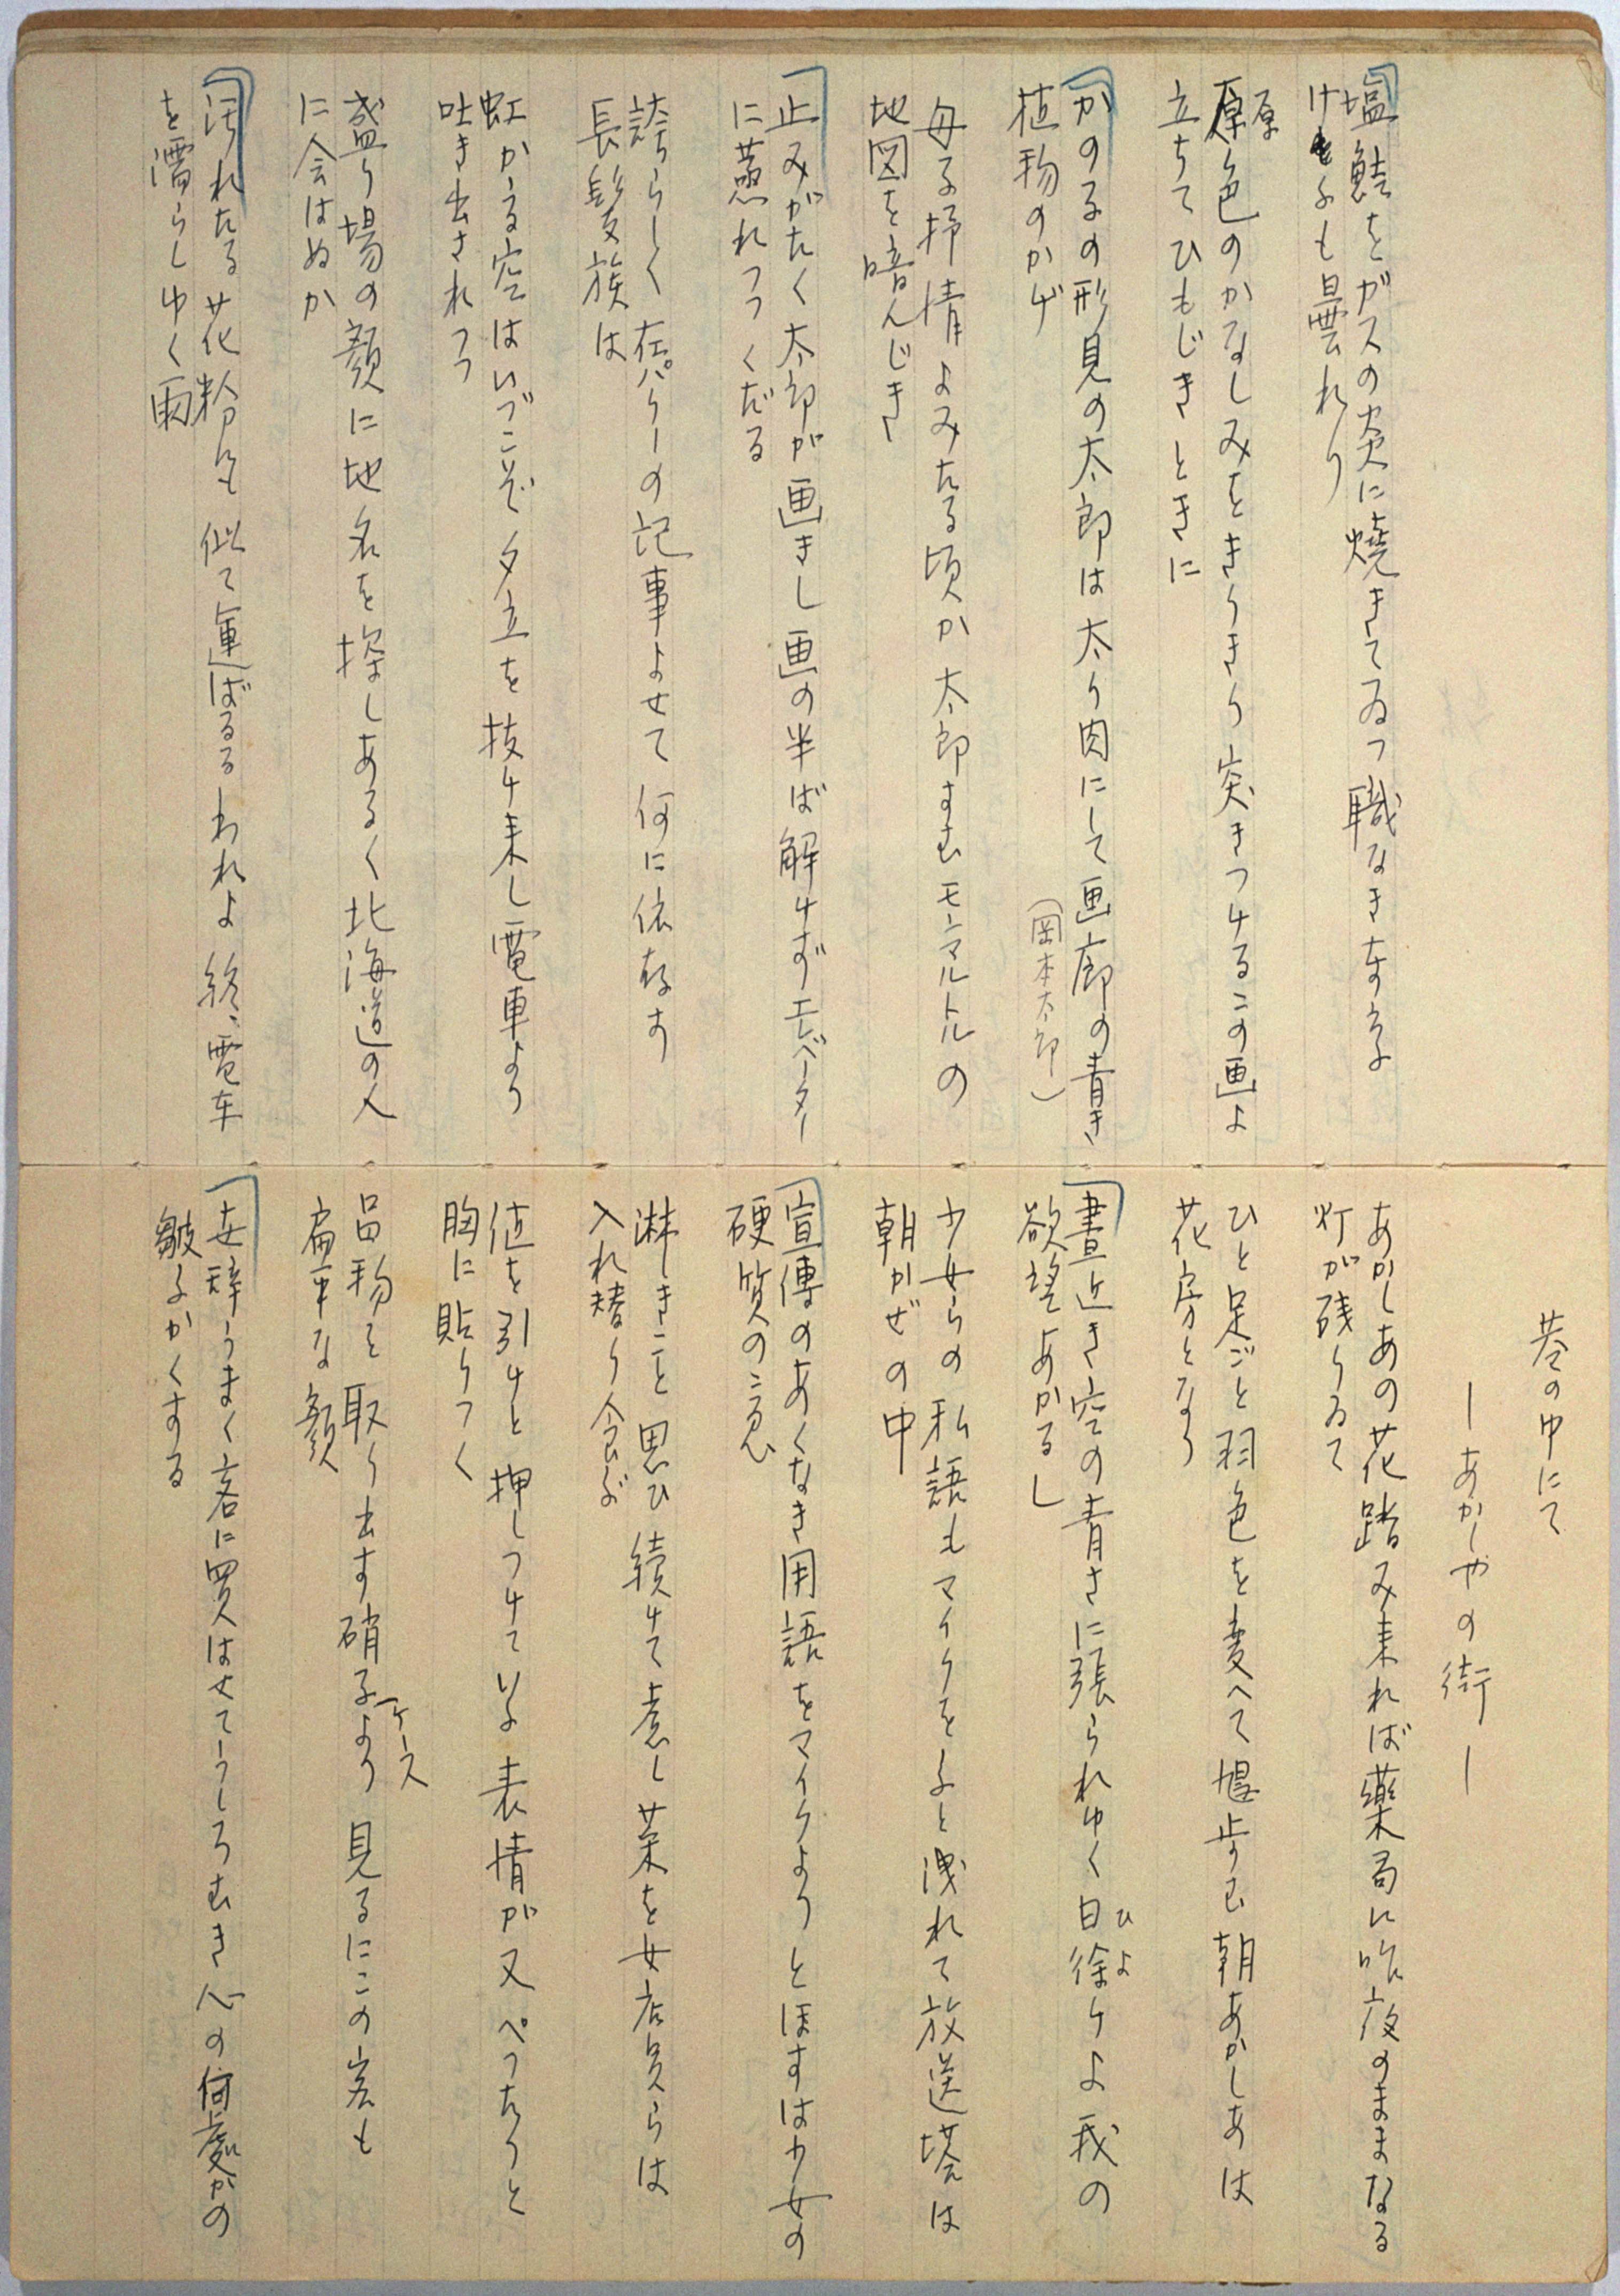 塩鮭をガスの炎に焼きてゐつ職なき東京
けふも曇れり
原
原色のかなしみをきりきり突きつけるこの画よ
立ちてひもじきときに
かのるの形見の太郎は太り肉にして画廊の青き
植物のかげ
(岡本太郎)
母子抒情よみたる頃か太郎すむモンマルトルの
地図を暗んじき
止みがたく太郎が画きし画の半ば解けずエレベーター
に蒸れつつくだる
誇らしく在パリーの記事よせて何に依存す
長髪族は
虹かかる空はいづこぞ夕立を抜け来し電車より
吐き出されつつ
盛り場の顔に地名を探しあるく北海道の人
に会はぬか
汚れたる花粉にも似て運ばるるわれよ終電車
を濡らしゆく雨
巷の中にて
―あかしやの街―
あかしあの花踏み来れば薬局に昨夜のままなる
灯が残りゐて
ひと足ごと羽色を変へて鳩歩む朝あかしあは
花房となり
昼近き空の青さに張られゆく日徐けよ我の
ひよ
欲望あかるし
少女らの私語もマイクをふと洩れて放送塔は
朝かぜの中
宣傳のあくなき用語をマイクよりとほすは少女の
硬質のこゑ
淋しきこと思ひ続けて煮し菜を女店員らは
入れ替り食ぶ
値を引けと押しつけていふ表情が又ぺったりと
胸に貼りつく
品物を取り出す硝子より見るにこの客も
ケース
扁平な顔
世辞うまく客に買はせてうしろむき心の何處かの
皺ふかくする